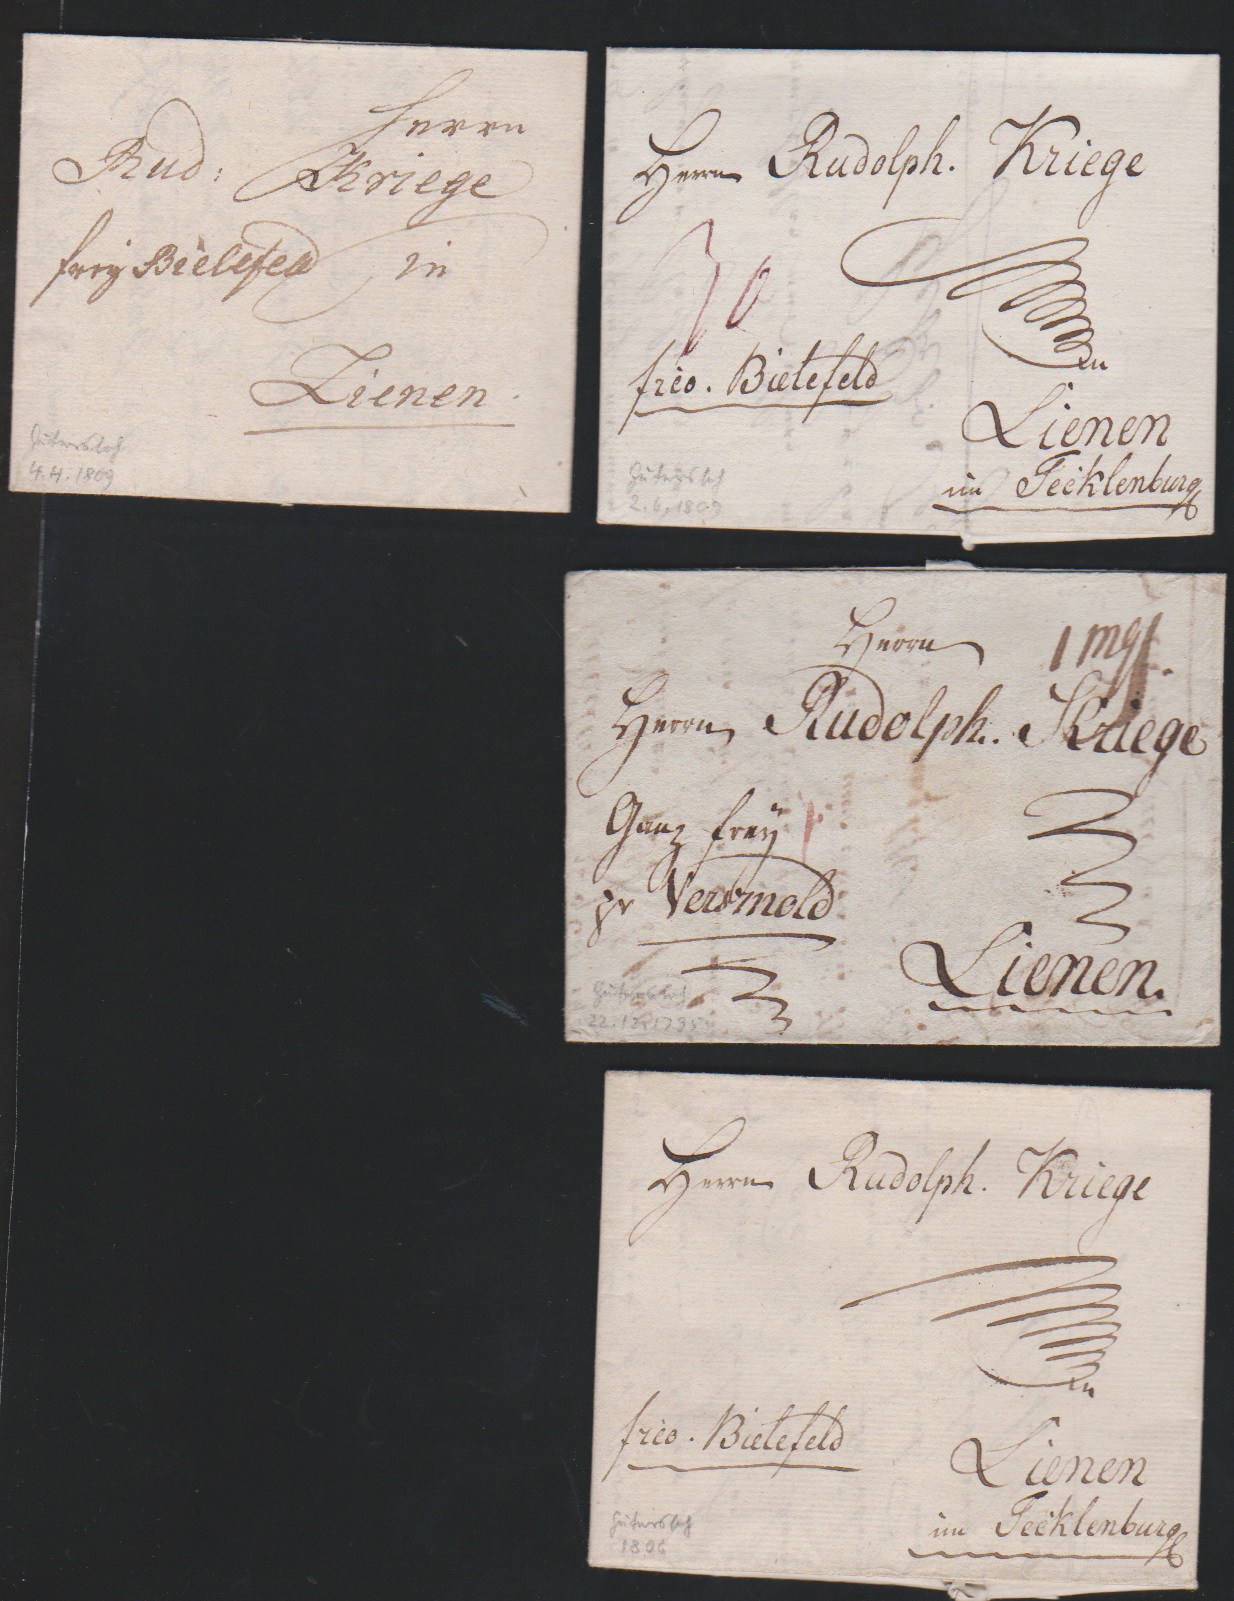 Herrn
Rud: Kriege
frey Bielefeld in
Lienen.
Gütersloh
4.4.1809
Herrn Rudolph. Kriege
frco. Bielefeld
in
Lienen
im Tecklenburg
Gütersloh
2.6.1809
Herrn
1 mgf.
Herrn Rudolph. Kriege
Ganz frey
pr Versmold
Lienen.
Gütersloh
Herrn Rudolph. Kriege
in
frco. Bielefeld
Lienen
im Tecklenburg
Gütersloh
1806